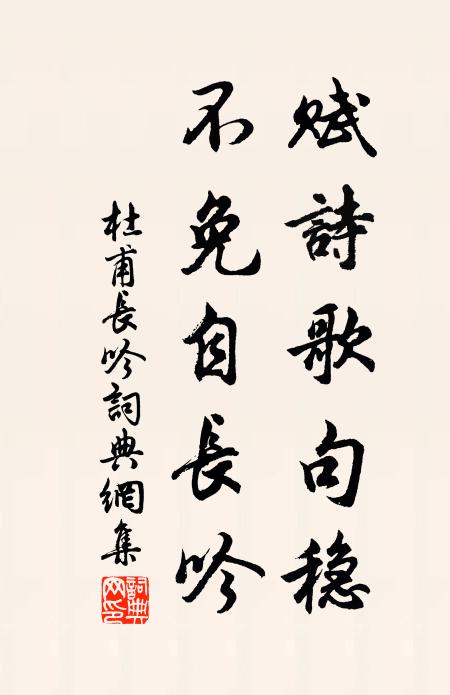 賦詩歌句穏
不免自長吟
杜甫長吟詞典網集
詞典网印